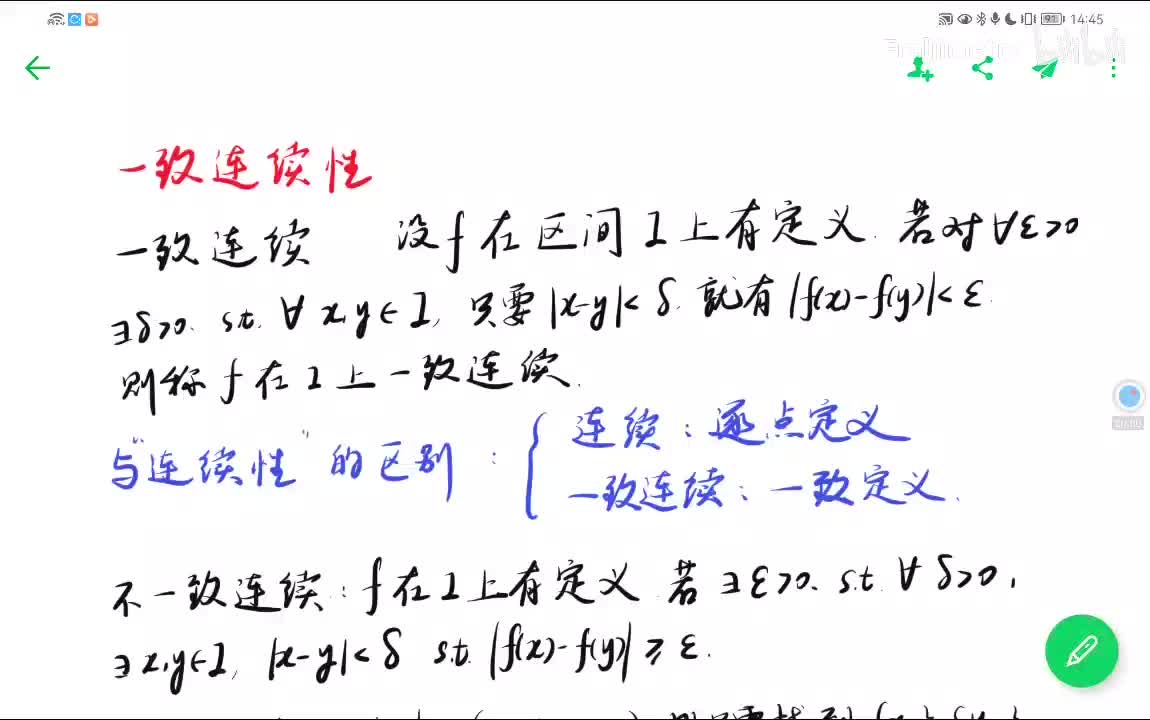 14:45
bilibili
一致连续性
一致连续 设 f 在区间 I 上有定义. 若对 ∀ε>0
∃δ>0. s.t. ∀ x,y∈I, 只要 |x-y|<δ. 就有 |f(x)-f(y)|<ε.
则称 f 在 I 上一致连续.
与“连续性”的区别: { 连续: 逐点定义
一致连续: 一致定义.
不一致连续: f 在 I 上有定义 若 ∃ε>0. s.t. ∀ δ>0,
∃ x,y∈I, |x-y|<δ s.t. |f(x)-f(y)| ≥ ε.